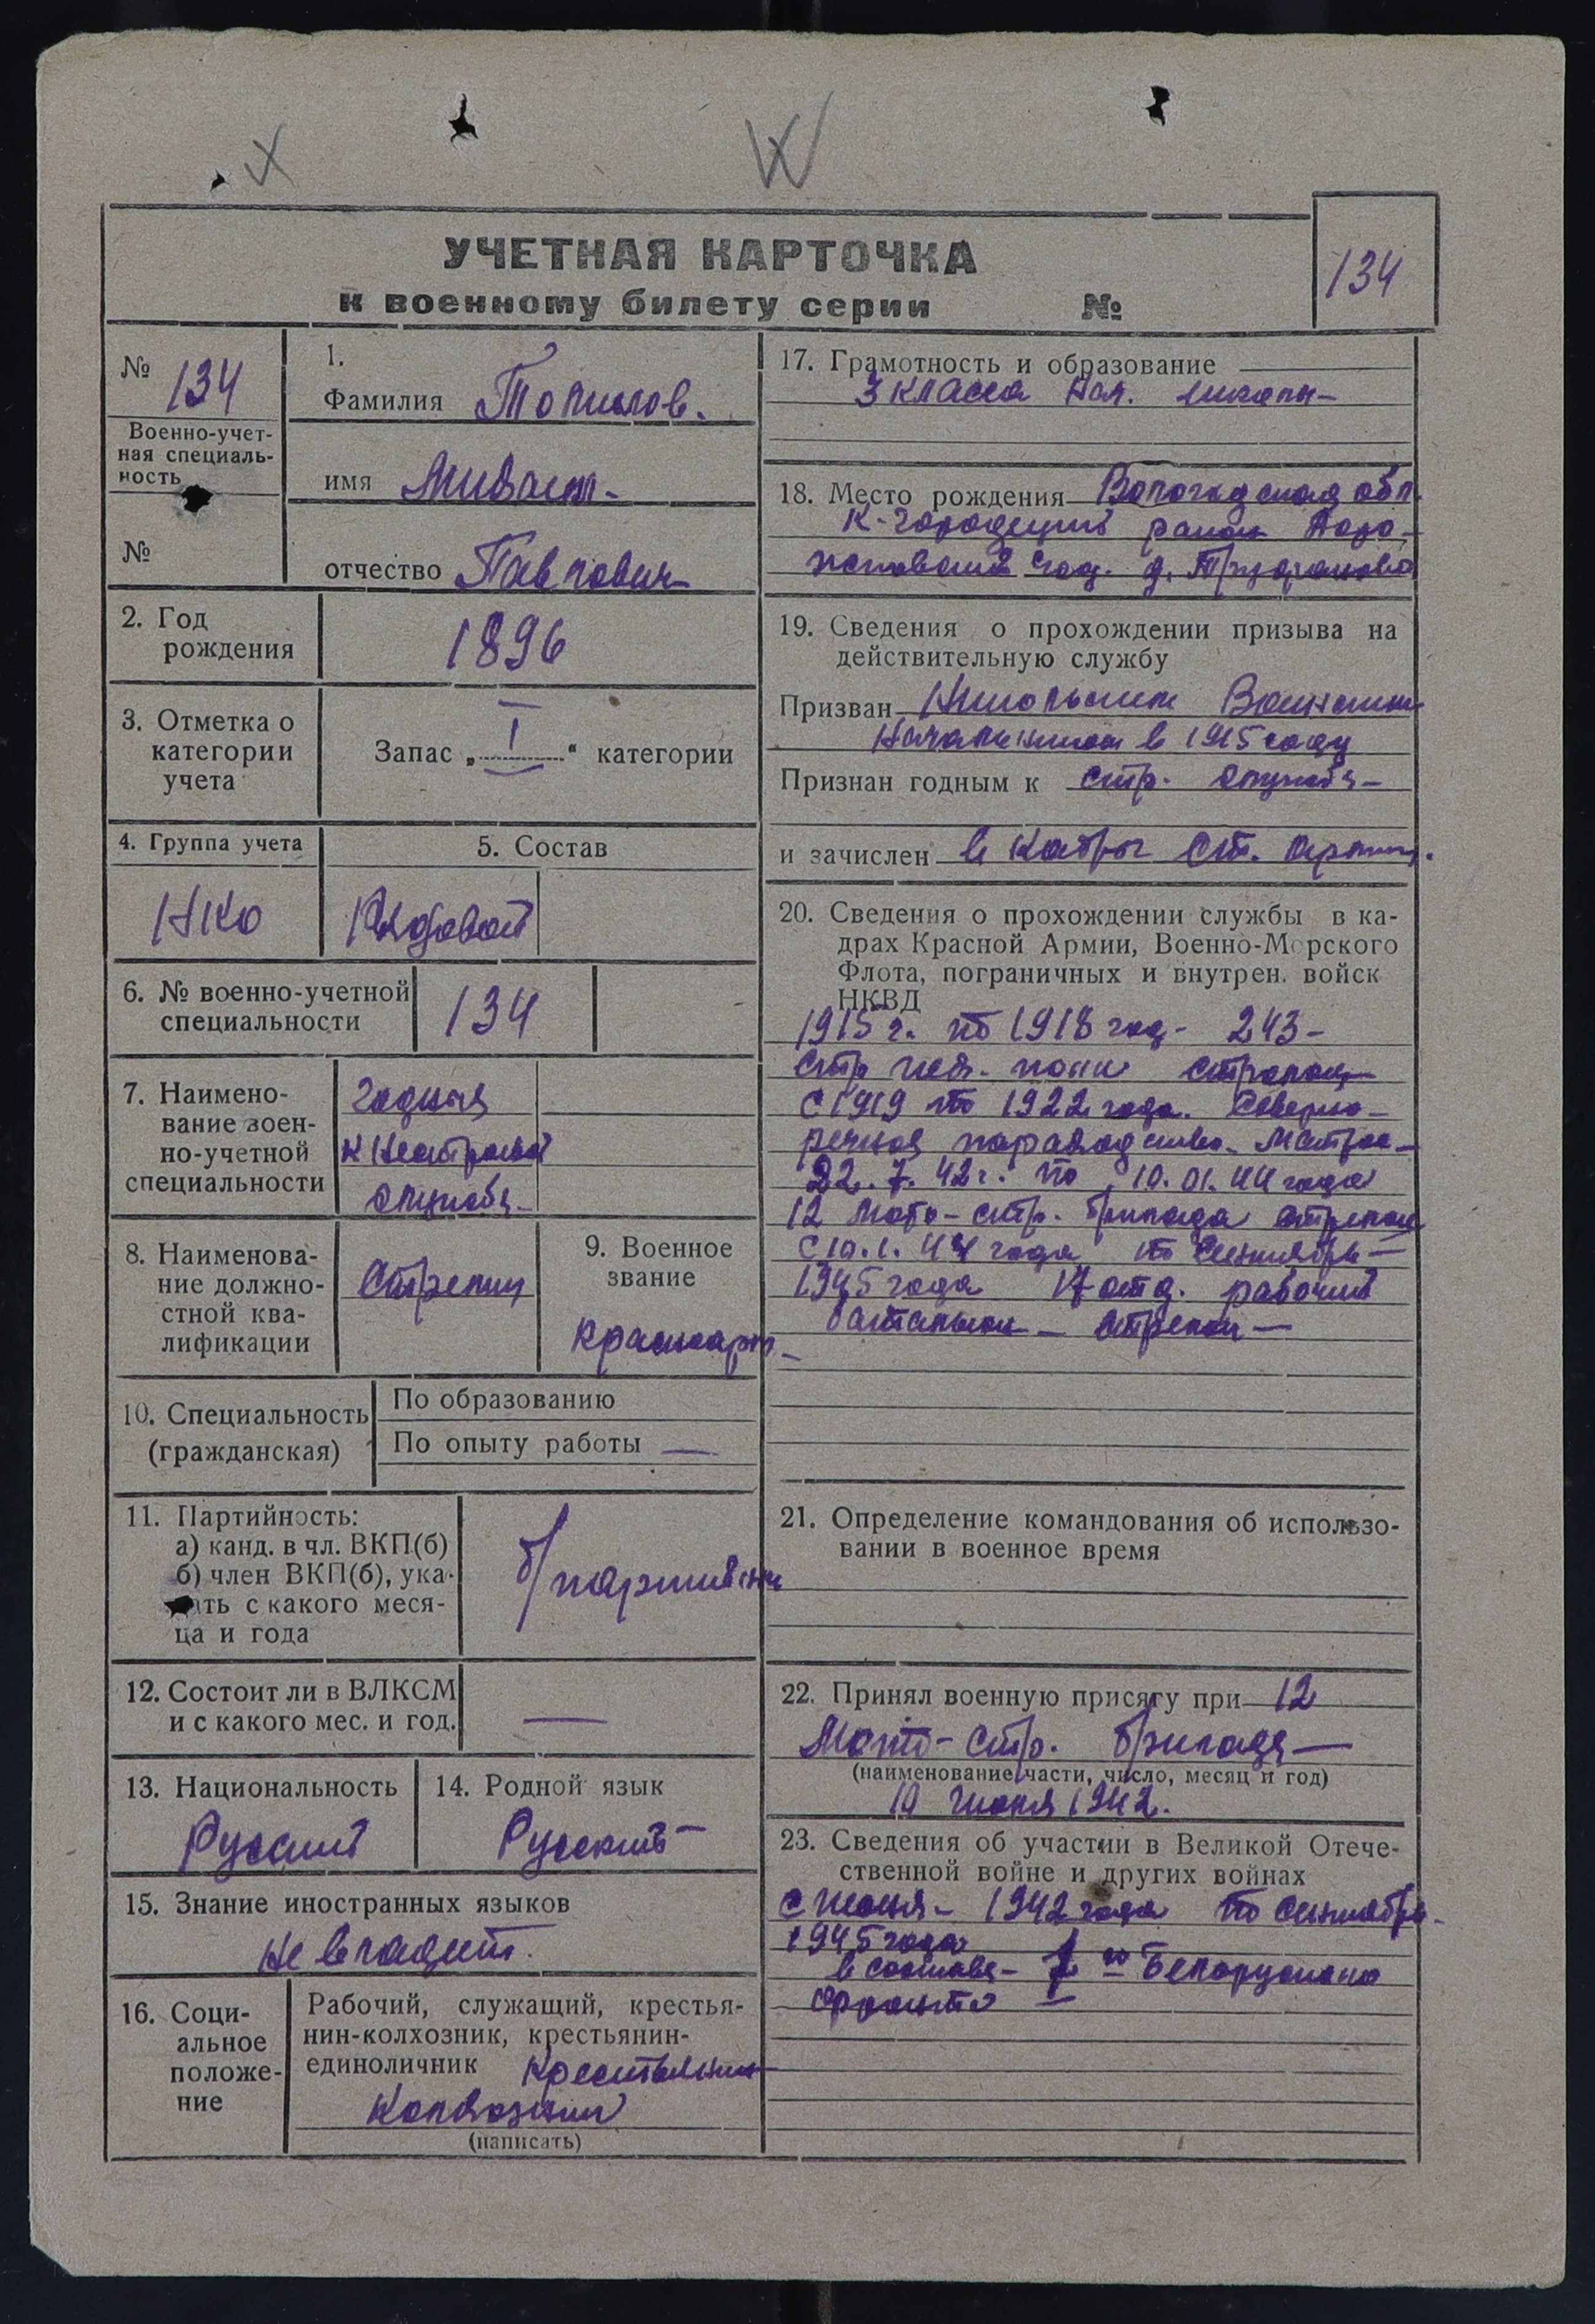 УЧЕТНАЯ КАРТОЧКА
к военному билету серии №
134
№ 134
Военно-учет-
ная специаль-
ность
№
1.
Фамилия Топилов.
имя Михаил
отчество Павлович
2. Год
рождения
1896
3. Отметка о
категории
учета
Запас „I“ категории
4. Группа учета
НКО
5. Состав
Рядовой
6. № военно-учетной
специальности
134
7. Наимено-
вание воен-
но-учетной
специальности
годный
к нестроевой
службе
8. Наименова-
ние должно-
стной ква-
лификации
Стрелец
9. Военное
звание
красноарм
10. Специальность
(гражданская)
По образованию
По опыту работы —
11. Партийность:
а) канд. в чл. ВКП(б)
б) член ВКП(б), ука-
зать с какого меся-
ца и года
б/партийный
12. Состоит ли в ВЛКСМ
и с какого мес. и год.
—
13. Национальность
Русский
14. Родной язык
Русский
15. Знание иностранных языков
не владеет.
16. Соци-
альное
положе-
ние
Рабочий, служащий, крестья-
нин-колхозник, крестьянин-
единоличник Крестьянин
Колхозник
(написать)
17. Грамотность и образование
3 класса нач. школы
18. Место рождения Вологодская обл.
К-Городецкий район
сов. д.
19. Сведения о прохождении призыва на
действительную службу
Призван Никольским Воинским
Начальником в 1915 году
Признан годным к стр. службе
и зачислен в кадры ст. армии.
20. Сведения о прохождении службы в ка-
драх Красной Армии, Военно-Морского
Флота, пограничных и внутрен. войск
НКВД
1915 г. по 1918 год - 243 -
стр полк
с 1919 по 1922 года. Северно-
речное пароходство. Матрос
22. 7. 42 г. по 10. 01. 44 года
12 Мото-стр. бригада стрелок
с 10. 1. 44 года по сентябрь
1945 года 17 отд. рабочий
батальон - стрелок
21. Определение командования об использо-
вании в военное время
22. Принял военную присягу при 12
Мото-стр. бригаде
(наименование части, число, месяц и год)
10 1942.
23. Сведения об участии в Великой Отече-
ственной войне и других войнах
с июня 1942 года по сентябрь
1945 года
в составе го Белорусского
фронта